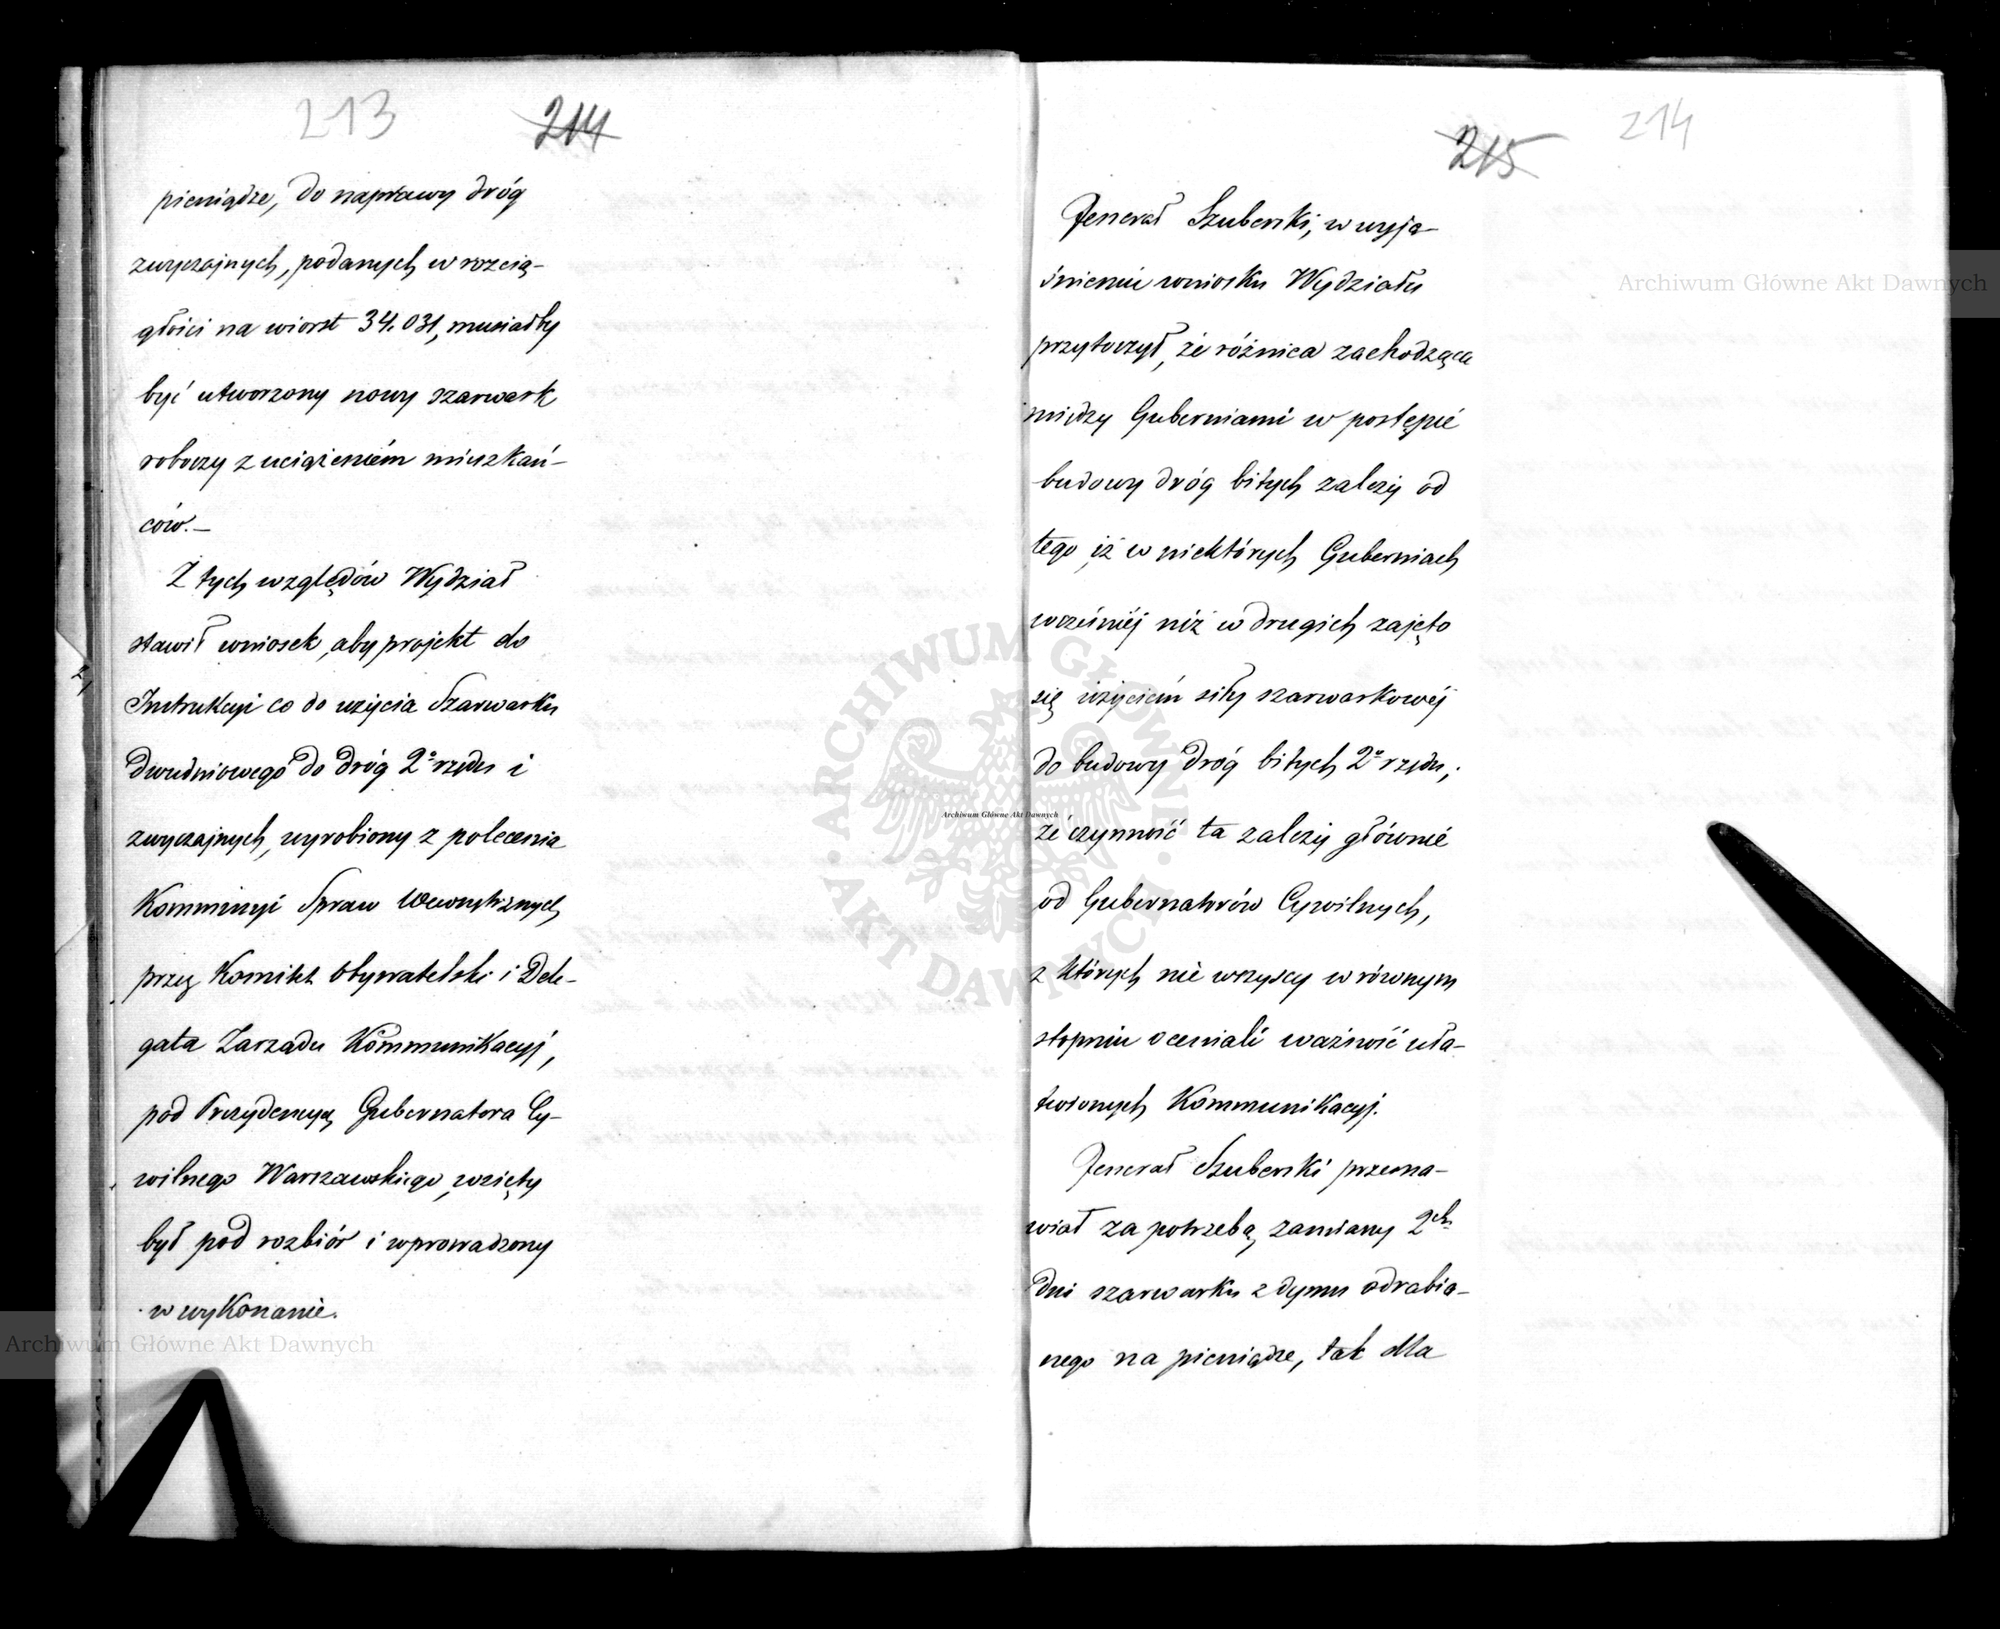 213 214
pieniądze, do naprawy dróg
zwyczajnych, podanych w rozcią-
głości na wiorst 34.031, musiałby
być utworzony nowy szarwark
roboczy z uciążeniem mieszkań-
ców.—
Z tych względów Wydział
stawił wniosek, aby projekt do
Instrukcyi co do użycia Szarwarku
dwudniowego do dróg 2o rzędu i
zwyczajnych, wyrobiony z polecenia
Kommissyi Spraw Wewnętrznych
przez Komitet Obywatelski i Dele-
gata Zarządu Kommunikacyj,
pod Prezydencyą Gubernatora Cy-
wilnego Warszawskiego, wzięty
był pod rozbiór i wprowadzony
w wykonanie.
215 214
Jenerał Szuberski, w wyja-
śnieniu wniosku Wydziału
przytoczył, że różnica zachodząca
między Guberniami w postępie
budowy dróg bitych zależy od
tego, iż w niektórych Guberniach
wcześniéj niż w drugich zajęto
się użyciem siły szarwarkowéj
do budowy dróg bitych 2o rzędu;
że czynność ta zależy głównie
od Gubernatorów Cywilnych,
z których nie wszyscy w równym
stopniu oceniali ważność uła-
twionych Kommunikacyj.
Jenerał Szuberski przema-
wiał za potrzebą zamiany 2ch
dni szarwarku z dymu odrabia-
nego na pieniądze, tak dla
Archiwum Główne Akt Dawnych
Archiwum Główne Akt Dawnych
Archiwum Główne Akt Dawnych
ARCHIWUM GŁÓWNE AKT DAWNYCH